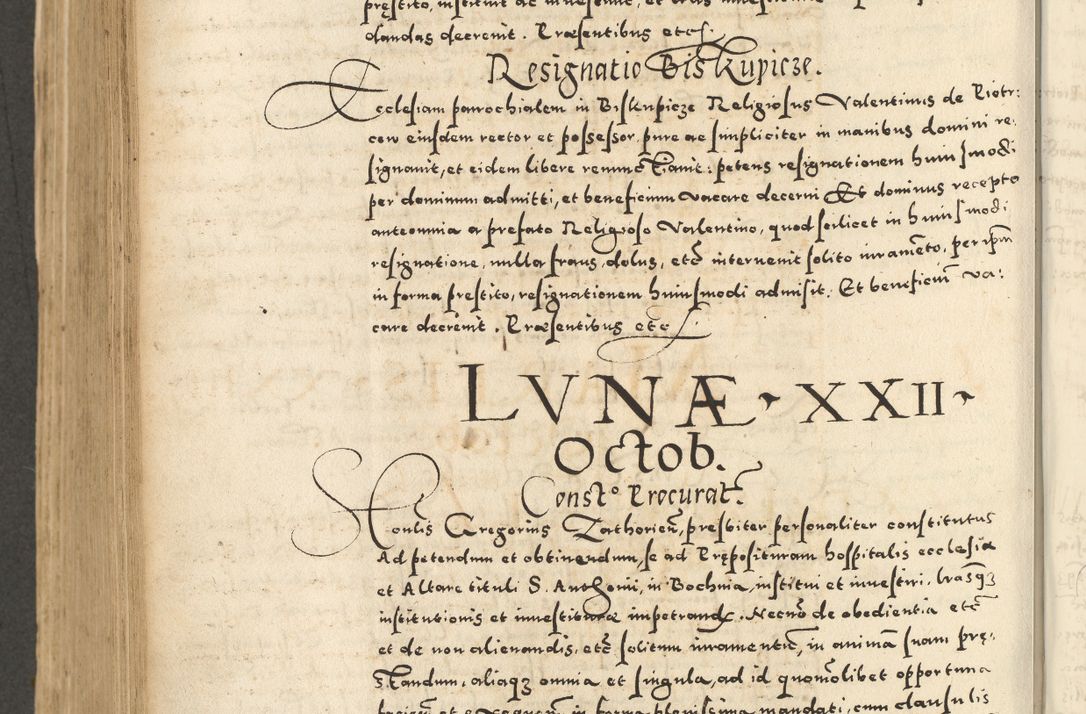 pręstito, instituit ac investivit, et
dandas decrevit. Præsentibus etc.
Resignatio Biskupicze.
Ecclesiam parochialem in Biskupicze Religiosus Valentinus de Piotr:
cow eiusdem rector et possessor, pure ac simpliciter in manibus domini re:
signavit, et eidem libere renunctiavit: petens resignationem huiusmodi
per dominum admitti, et beneficium vacare decerni Et dominus recepto
anteomnia a prefato Religioso Valentino, quod scilicet in huiusmodi
resignatione, nulla fraus, dolus, etc̃ intervenit solito iuramẽto, per ip̃m
in forma prestito, resignationem huiusmodi admisit. Et beneficiũ va:
care decrevit. Præsentibus etc
LVNÆ XXII
Octob.
Const° Procurat̃.
Honlis Gregorius Zathorieñ, presbiter personaliter constitutus
Ad petendum et obtinendum, se ad Pręposituram hospitalis ecclesia
et Altare tituli S. Anthonii, in Bochnia, institui et investiri, lrasqꝫ
institutionis et investituræ impetrand. Necnõ de obedientia etc̃
et de non alienandis, etc̃ solitum iuramentũ, in animã suam prę:
standum, aliaqꝫ omnia et singula, ad id quomõlibet opportuna
in forma plenissima mandati, cum clausulis